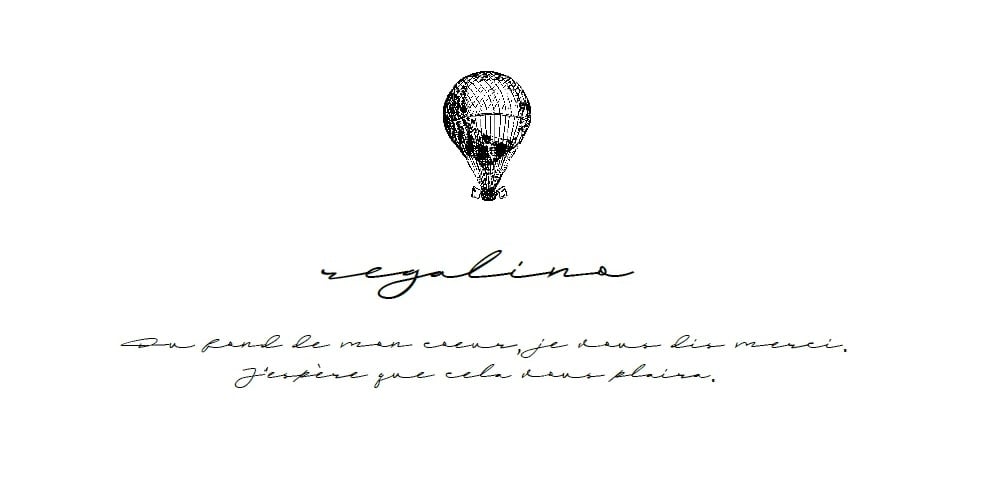 regalino
Du fond de mon coeur, je vous dis merci.
J'espère que cela vous plaira.